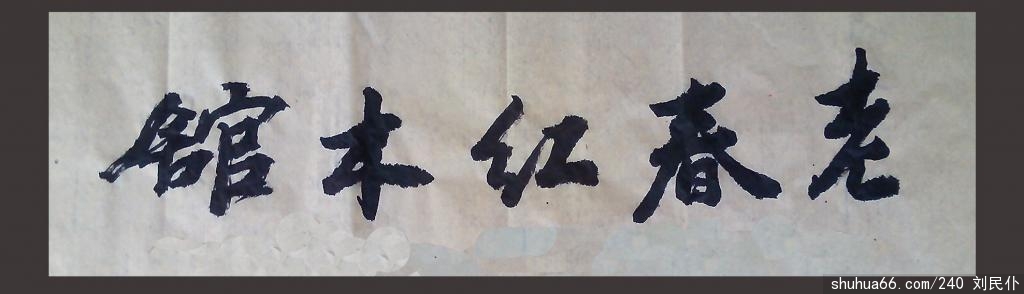 老春红木舘
shuhua66.com/240 刘民仆